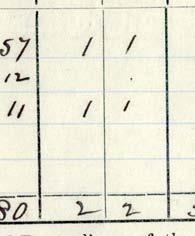 57 1 1
12
11 1 1
80 2 2